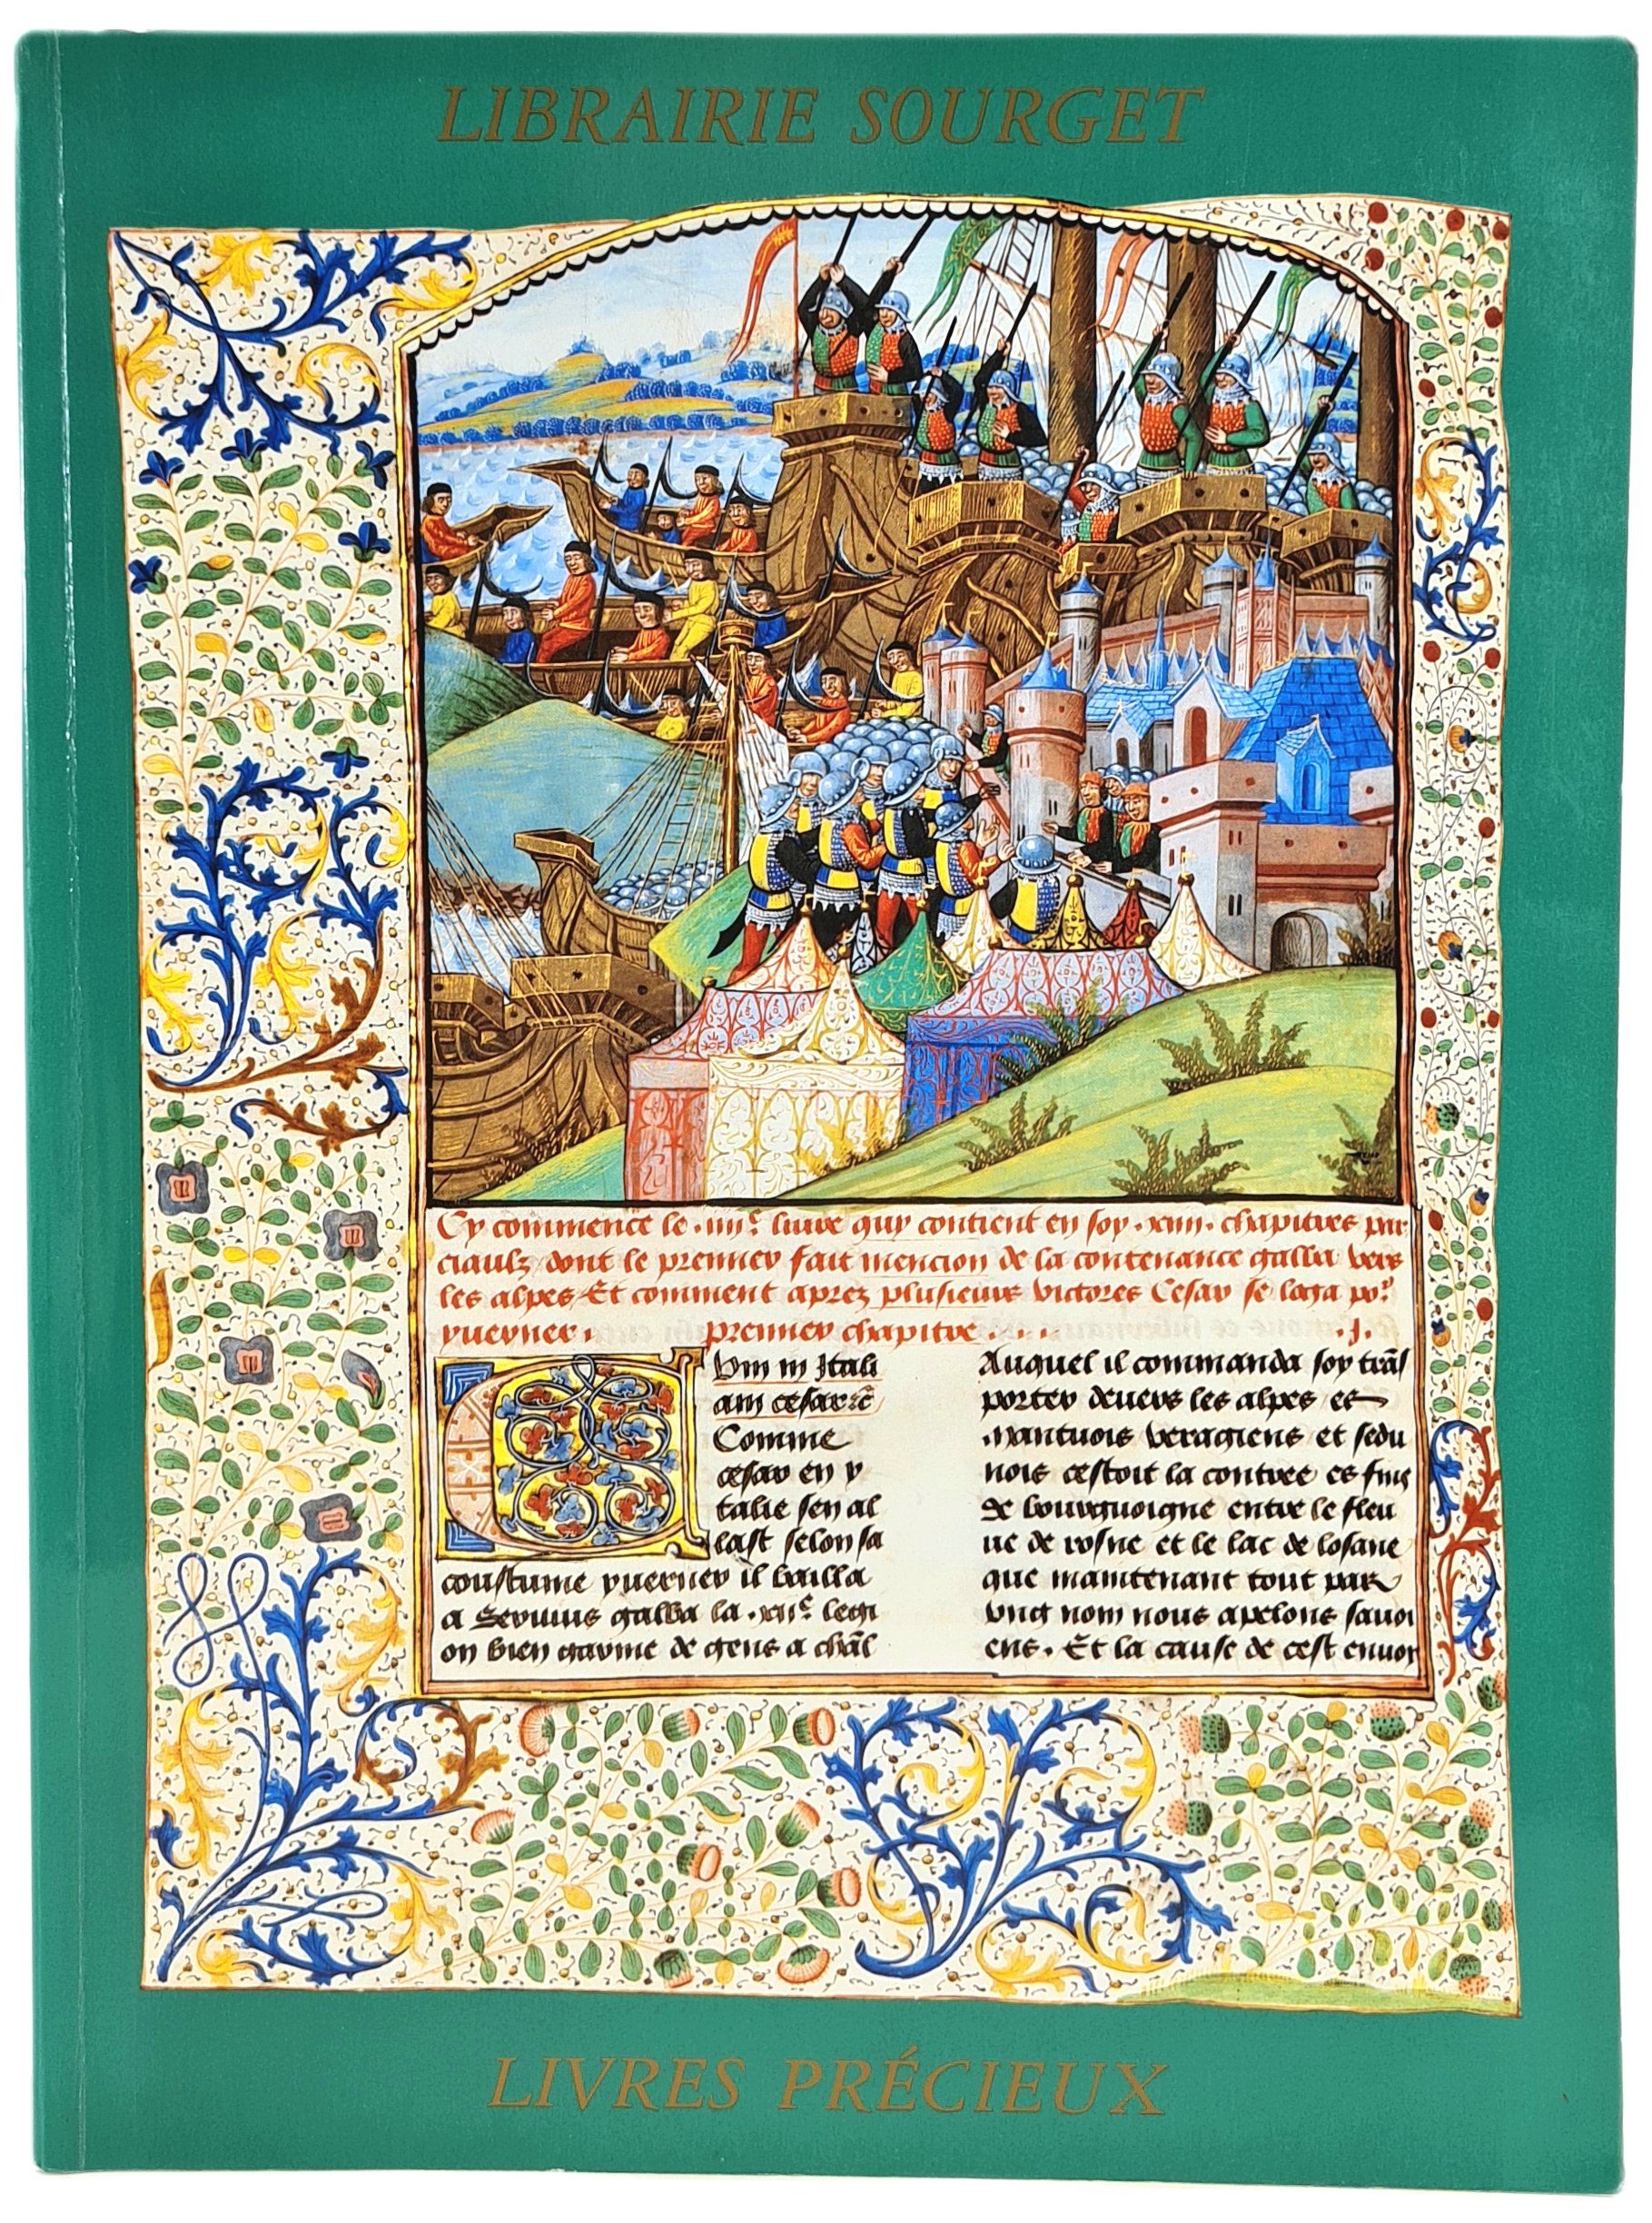 LIBRAIRIE SOURGET
Cy commence le .iiii.e liure quy contient en soy .xiiii. chapitres par
ciaulz dont le premier fait mencion de la contenance galba vers
les alpes Et comment aprez plusieurs victores Cesar se loga po.r
yuerner . premier chapitre . . . . .j.
Vm in Itali
am cesar zc
Comme
cesar en y
talie sen al
last selon sa
coustume yuerner il bailla
a Seruius galba la .xii.e legi
on bien garnie de gens a chãl
Auquel il commanda soy trãs
porter deuers les alpes es
nantuois veragiens et sedu
nois cestoit la contree es fins
de bourguoigne entre le fleu
ue de rosne et le lac de losane
que maintenant tout par
vng nom nous apelons sauoi
ens. Et la cause de cest enuoy
LIVRES PRÉCIEUX